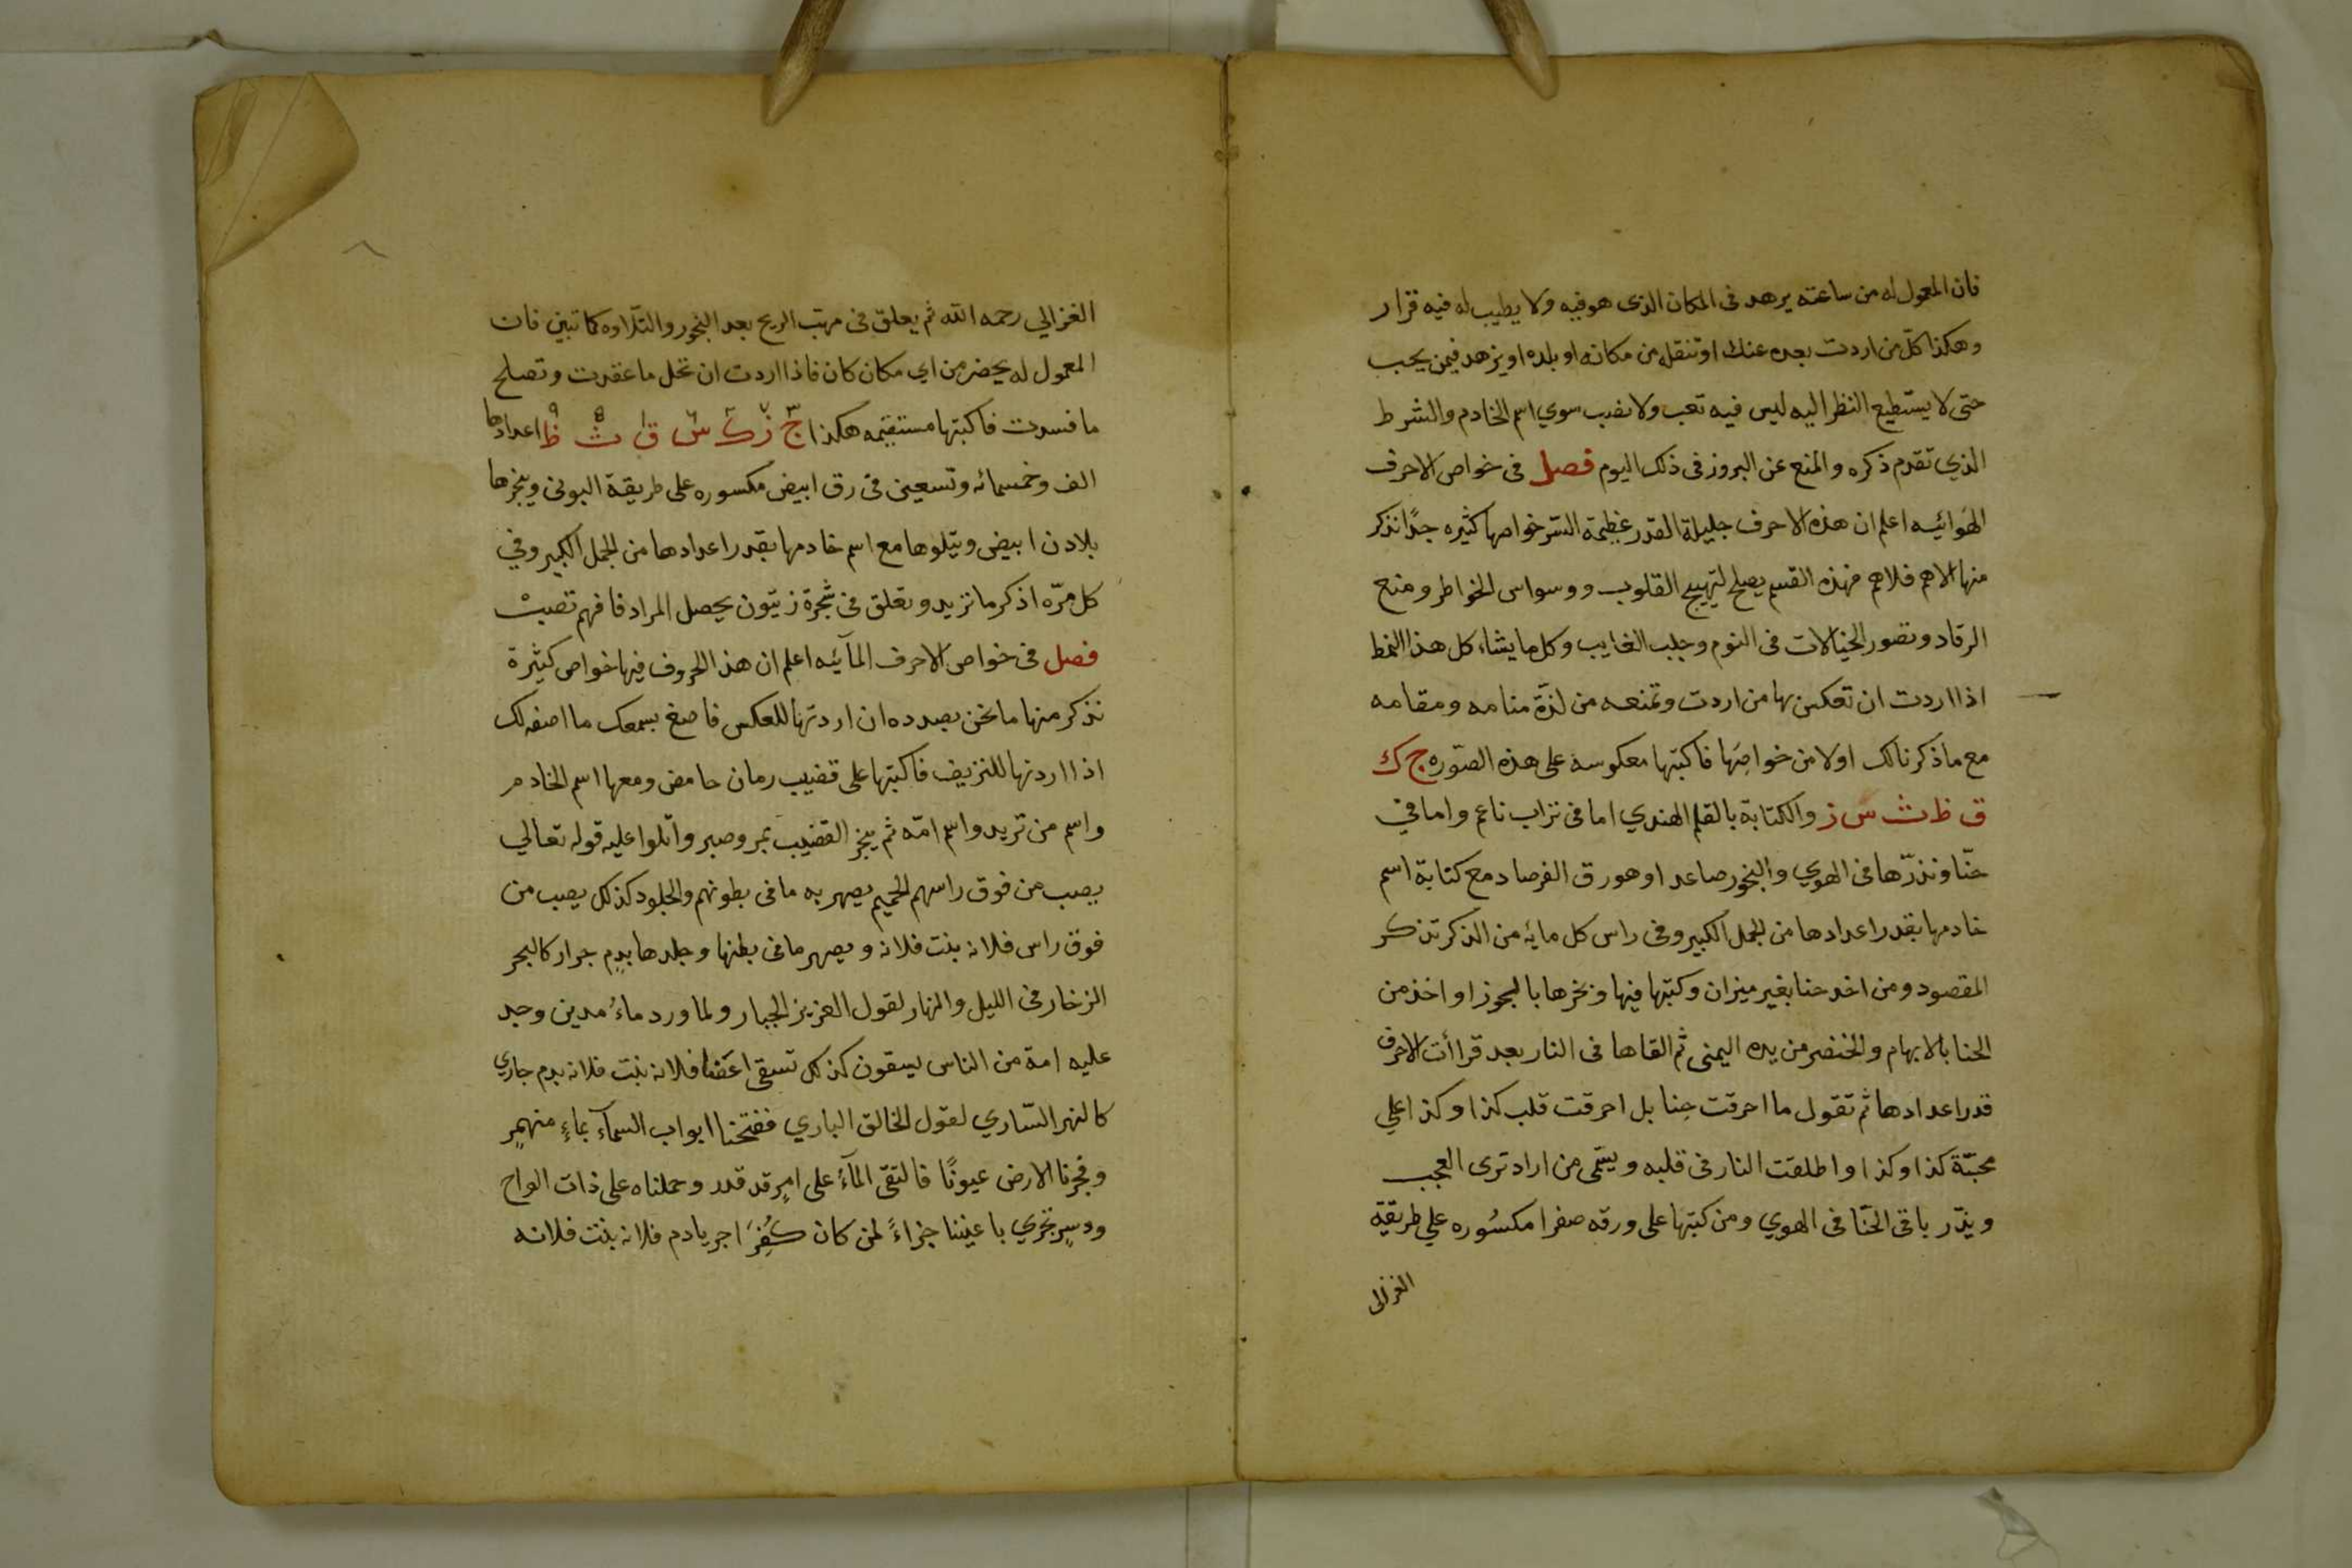 فان المعمول له من ساعته يزهد فى المكان الذى هو فيه ولا يطيب له فيه قرار
وهكذا كل من اردت بعده عنك او تنقله من مكانه او بلده او يزهد فيمن يحب
حتى لا يستطيع النظر اليه ليس فيه تعب ولا نصب سوي اسم الخادم والشرط
الذي تقدم ذكره والمنع عن البروز فى ذلك اليوم فصل فى خواص الاحرف
الهوائيه اعلم ان هذه الاحرف جليلة القدر عظيمة السّر خواصها كثيره جدًا نذكر
منها الاهم فلاهم فهذه القسم يصلح لتهييج القلوب ووسواس الخواطر ومنع
الرقاد وتصور الخيالات فى النوم وجلب الغايب وكل ما يشاء كل هذا النمط
اذا اردت ان تعكس بها من اردت وتمنعه من لذّة منامه ومقامه
مع ما ذكرنا لك اولا من خواصِهَا فاكتبها معكوسة على هذه الصّوره ج ك
ق ظ ث س ز والكتابة بالقلم الهندي اما فى تراب ناعم واما في
حنّا ونذرّها فى الهوي والبخور صاعد او هو رق الفرصاد مع كتابة اسم
خادمها بقدر اعدادها من الجمل الكبير وفى راس كل مايه من الذكر تذكر
المقصود ومن اخد حنا بغير ميزان وكتبها فيها وبخرها بالجوز او اخذ من
الحنا بالابهام والخنصر من يده اليمنى ثم القاها فى النار بعد قراأت الاحرف
قدر اعدادها ثم تقول ما احرقت حِنا بل احرقت قلب كذا وكذا علي
محبّة كذا وكذا واطلقت النار فى قلبه ويسّمى من اراد ترى العجب
ويذّر باقى الحنّا فى الهوي ومن كتبها على ورقه صفرا مكسُوره علي طريقة
الغزالى
الغزالي رحمه الله ثم يعلق فى مهبّ الريح بعد البخور والتّلاوه كما تبين فان
المعمول له يحضر من اي مكان كان فاذا اردت ان تحل ما عقدت وتصلح
ما فسدت فاكتبها مستقيمه هكذا ج ز ك س ق ث ظ اعدادها
الف وخمسمائه وتسعين فى رق ابيض مكسوره على طريقة البونى ويبخرها
بلادن ابيض ويتلوها مع اسم خادمها بقدر اعدادها من الجمل الكبير وفي
كل مرّه اذكر ما تزيد وتعلق فى شجرة زيتون يحصل المراد فافهم تصبْ
فصل فى خواص الاحرف المآئيه اعلم ان هذا الحروف فيها خواص كثيرة
نذكر منها ما نحن بصدده ان اردتها للعكس فاصغ بسمعك ما اصفه لك
اذا اردتها للنزيف فاكتبها على قضيب رمان حامض ومعها اسم الخادم
واسم من تريد واسم امّه ثم يبخر القضيب بمر وصبر واتلوا عليه قوله تعالي
يصب من فوق راسهم الحميم يصهر به ما فى بطونهم والجلود كذلك يصب من
فوق راس فلانه بنت فلانه ويصهر ما فى بطنها وجلدها بدِم جرار كالبحر
الزخار فى الليل والنهار لقول العزيز الجبار ولما ورد ماءُ مدين وجد
عليه امة من الناس يسقون كذلك تسقى فلانه بنت فلانه بدم جاري
كالنهر السّاري لقول الخالق الباري ففتحنا ابواب السمآء بماءٍ منهمرٍ
وفجرنا الارض عيونًا فالتقى المآءُ على امرٍ قد قدر وحملناه على ذات الواح
ودسرٍ تجري باعيننا جزاءً لمن كان كُفِرَ اجر يا دم فلانه بنت فلانه